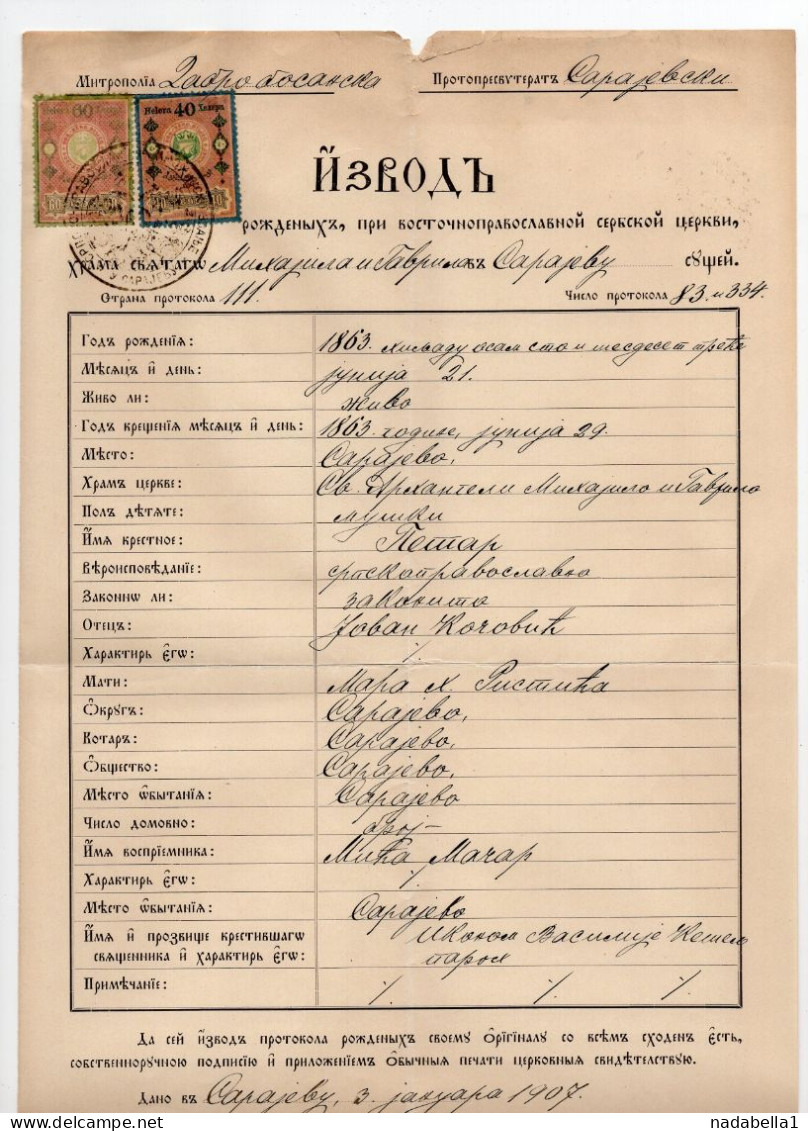 Митрополіѧ Дабробосанска Протопресвутератъ Сарајевски
60
Helera 40 Хелера
ИЗВОДЪ
рожденыхъ, при восточноправославной сербской церкви,
храма свѧтагѡ Михаила и Гаврила въ Сарајеву сꙋщей.
Страна протокола 111. Число протокола 83. и 334.
Годъ рожденіѧ: 1863. хиљаду осам сто и шесдесет треће
Мѣсѧцъ й день: јунија 21.
Живо ли: живо
Годъ крещеніѧ мѣсѧцъ й день: 1863. године, јунија 29.
Мѣсто: Сарајево,
Храмъ церкве: Св. Архангели Михаило и Гаврило
Полъ дѣтѧте: мушки
Имѧ крестное: Петар
Вѣроисповѣданіе: српскоправославно
Законнѡ ли: законито
Отецъ: Јован Кочовић
Характиръ єгѡ: %
Мати: Мара х. Ристића
Ѡкругъ: Сарајево,
Котаръ: Сарајево,
Ѡбщество: Сарајево,
Мѣсто ѡбытаніѧ: Сарајево
Число домовно: број –
Имѧ воспріемника: Мића Мачар
Характиръ єгѡ: %
Мѣсто ѡбытаніѧ: Сарајево
Имѧ й прозвище крестившагѡ Иконом Василије
свѧщенника й характиръ єгѡ: парох
Примѣчаніе: % % %
Да сей йзводъ протокола рожденыхъ своему ѻрігіналу со всѣмъ сходенъ єсть,
собственноручною подписію й приложеніемъ ѻбычныѧ печати церковныѧ свидѣтелствую.
Дано въ Сарајеву, 3. јануара 1907.
nadabella1